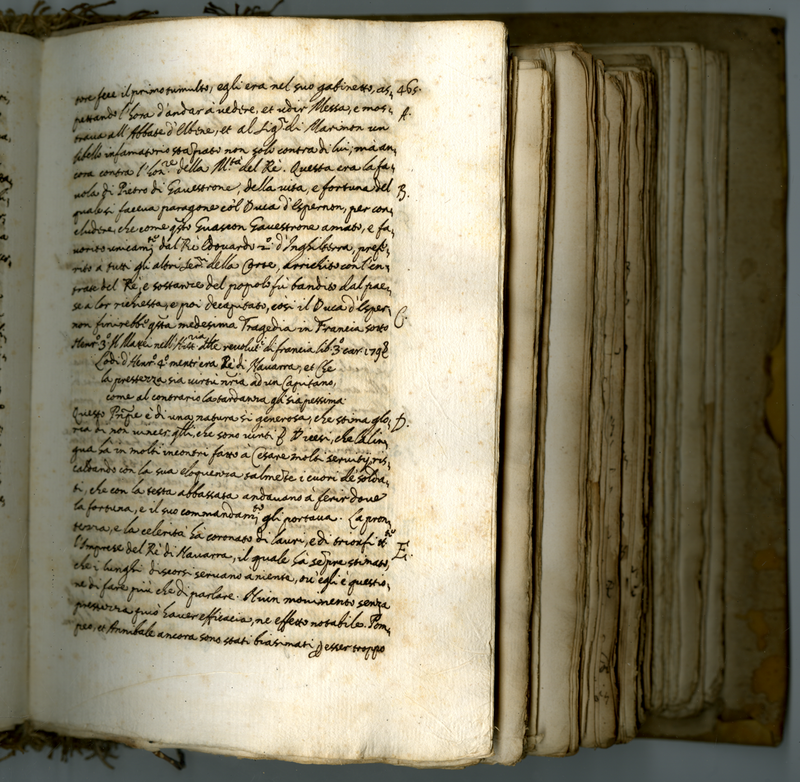 tore fece il primo tumulto, egli era nel suo gabinetto, as, 465.
pettando l'hora d'andar à vedire, et udir Messa, e mos, A.
traua all'Abbate d'Elbene, et al Sig.r di Marmon un
libello infamatorio stampato non solo contra di lui, mà an,
cora contra l'hon.re della M.tà del Rè. Questa era la fa,
uola di Pietro di Gauestrone, della vita, e fortuna del B.
quale si faceua paragone còl Duca d'Espernon, per con,
cludere, che come q.sto Guascon Gauestrone amato, e fa,
uorito unicam.te dal Rè Edouardo 2.º d'Inghilterra, prefe,
rito à tutti gli altri della Corte, arrichito con l'en,
trate del Rè, e sostanze del popolo fù bandito dal pae,
se à lor richiesta, e poi decapitato, così il Duca d'Esper, C.
non finirebbe q.sta medesima Tragedia in Francia sotto
Henr.º 3.º nell'Hist.ria delle reuolut.i di francia lib.º 3.º car. 179
Lodi d'Henr.º 4.º mentr'era Rè di Nauarra, et Che
la prestezza sia virtù n.ria ad un Capitano,
come al contrario la tardanza gli sia pessima.
Questo Prñpe è di una natura sì generosa, che stima glo, D.
ria di non uincer q.lli, che sono uinti. Dicesi, che la lin,
gua hà in molti incontri fatto à Cesare molti seruity, ris,
caldando còn la sua eloquenza talmẽte i cuori de' solda,
ti, che con la testa abbassata andauano à ferir doue
la fortuna, e il suo commandam.to gli portaua. La pron,
tezza, e la celerità hà coronato di lauri, e di trionfi
l'Imprese del Rè di Nauarra, il quale hà sempre stimato, E.
che i lunghi discorsi seruano à niente, ou'egli è questio,
ne di fare più che di parlare. Niun mouimento senza
prestezza può hauer efficacia, ne effetto notabile. Pom,
peo, et Annibale ancora sono stati biasimati p esser troppo